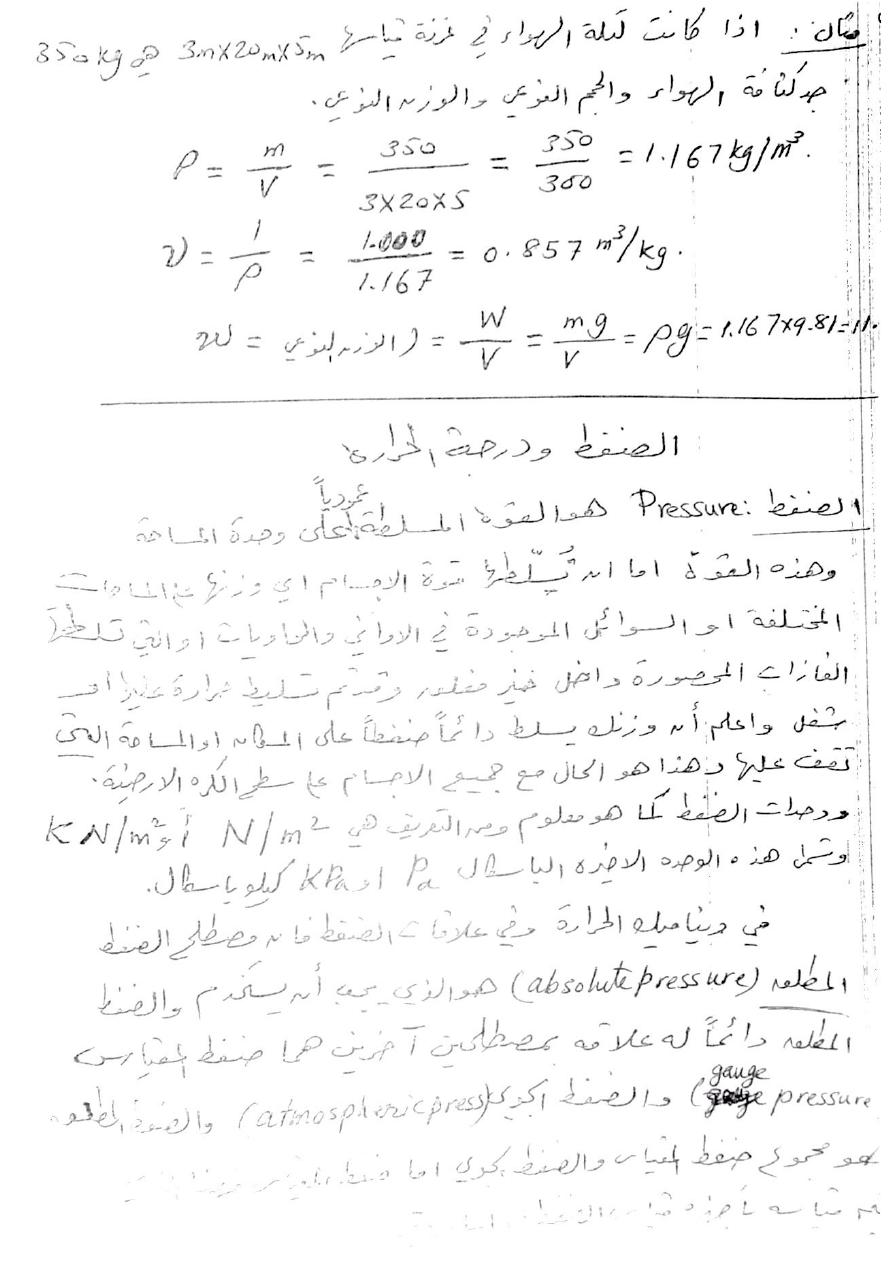 مثال : اذا كانت كتلة الهواء في غرفة قياسها 3m×20m×5m هي 350kg
جد كثافة الهواء والحجم النوعي والوزن النوعي.
ρ = m/V = 350/3×20×5 = 350/300 = 1.167 kg/m³.
υ = 1/ρ = 1.000/1.167 = 0.857 m³/kg.
w = (الوزن النوعي) = W/V = mg/V = ρg = 1.167×9.81 = 11.
الضغط ودرجة الحرارة
الضغط Pressure: هو القوة المسلطة عمودياً على وحدة المساحة
وهذه القوة اما ان تُسلّطها قوة الاجسام اي وزنها على المساحات
المختلفة او السوائل الموجودة في الاواني والحاويات او التي تسلطها
الغازات المحصورة داخل حيز مغلق وقد تم تسليط حرارة عليها او
شغل واعلم أن وزنك يسلط دائماً ضغطاً على المكان او المساحة التي
تقف عليها وهذا هو الحال مع جميع الاجسام على سطح الكره الارضية.
وحدات الضغط كما هو معلوم ومن التعريف هي N/m² أو KN/m²
وتسمى هذه الوحده الاخيره الباسكال Pa او KPa كيلو باسكال.
في ديناميك الحرارة وفي علاقات الضغط فان مصطلح الضغط
المطلق (absolute pressure) هو الذي يجب أن يستخدم والضغط
المطلق دائماً له علاقه بمصطلحين آخرين هما ضغط المقياس
(gauge pressure) والضغط الجوي (atmospheric press) والضغط المطلق
هو مجموع ضغط المقياس والضغط الجوي اما ضغط المقياس